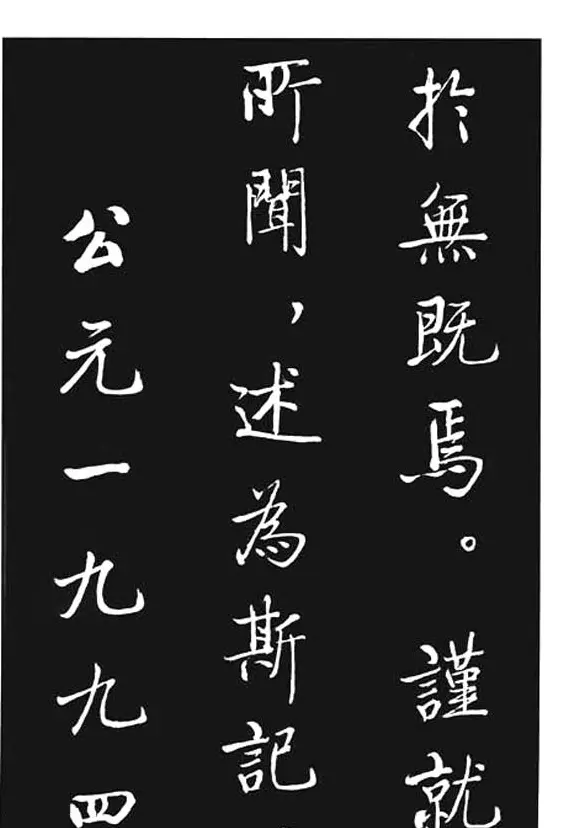 於無既焉。謹就
所聞，述為斯記
公元一九九四